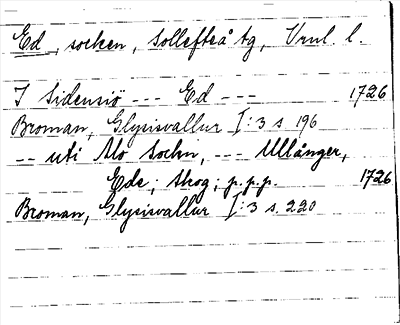 Ed, socken, Sollefteå tg, Vrnl. l.
I Sidensiö --- Ed --- 1726
Broman, Glysisvallur I:3 s 196
-- uti Mo Sochn, --- Ullånger,
Ede; Skog; p.p.p. 1726
Broman, Glysisvallur I:3 s. 220